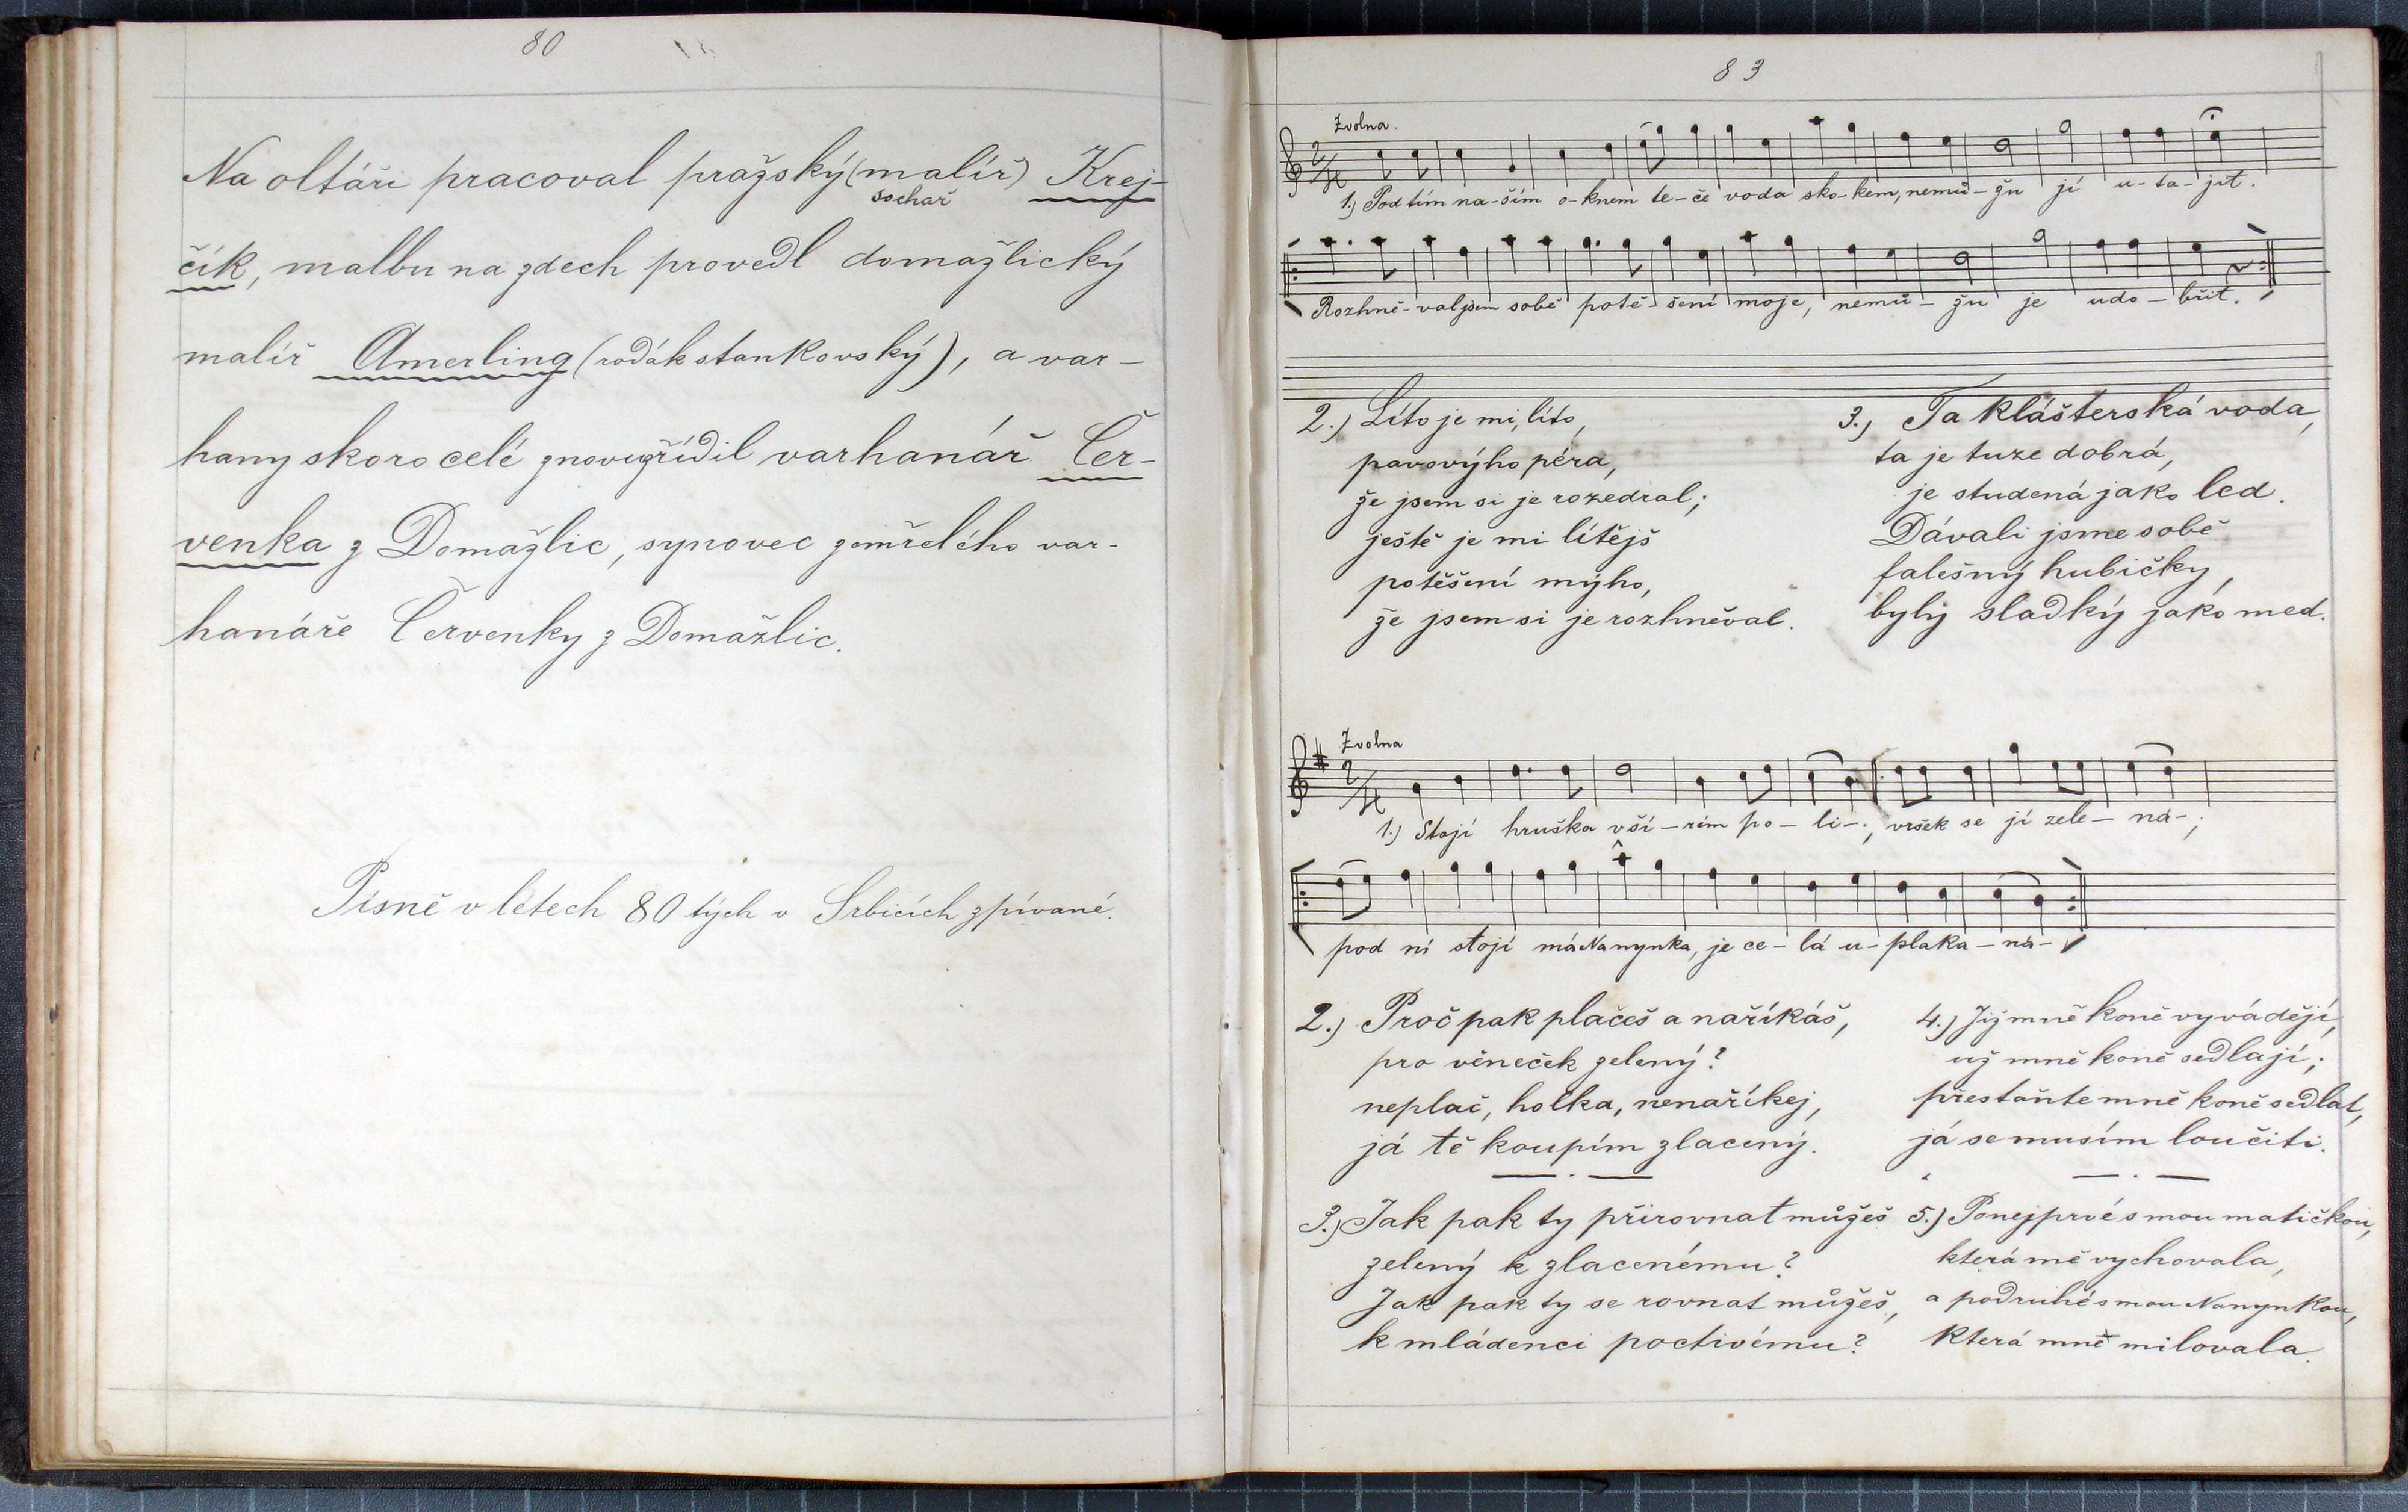 80
Na oltáři pracoval pražský (malíř) Krej-
sochař
čík, malbu na zdech provedl domažlický
malíř Amerling (rodák stankovský), a var-
hany skoro celé znovuzřídil varhanář Čer-
venka z Domažlic, synovec zemřelého var-
hanáře Červenky z Domažlic.
Písně v létech 80 tých v Srbicích zpívané.
83
Zvolna.
2/4
1.) Pod tím na-ším o-knem te-če voda sko-kem, nemů-žu jí u-ta-jit.
Rozhně-val jsem sobě potě-šení moje, nemů-žu je udo-břit.
2.) Líto je mi, líto,
pavovýho péra,
že jsem si je rozedral;
ještě je mi lítějš
potěšení mýho,
že jsem si je rozhněval.
3.) Ta klášterská voda,
ta je tuze dobrá,
je studená jako led.
Dávali jsme sobě
falešný hubičky,
byly sladký jako med.
Zvolna
2/4
1.) Stojí hruška v ší-rém po-li-, vršek se jí zele-ná-;
pod ní stojí má Nanynka, je ce-lá u-plaka-ná-
2.) Proč pak plačeš a naříkáš,
pro věneček zelený?
neplač, holka, nenaříkej,
já tě koupím zlacený.
3.) Jak pak ty přirovnat můžeš
zelený k zlacenému?
Jak pak ty se rovnat můžeš,
k mládenci poctivému?
4.) Již mně koně vyvádějí,
už mně koně sedlají;
přestaňte mně koně sedlat,
já se musím loučiti.
5.) Ponejprvé s mou matičkou,
která mě vychovala,
a podruhé s mou Nanynkou,
která mně milovala.